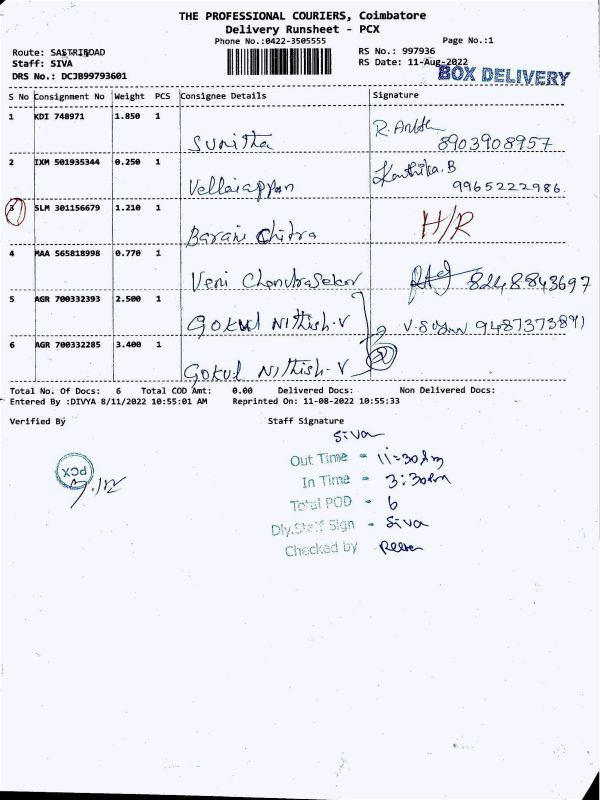 THE PROFESSIONAL COURIERS, Coimbatore
Delivery Runsheet - PCX
Phone No.:0422-3505555
Page No.:1
Route: SASTRIROAD
RS No.: 997936
Staff: SIVA
RS Date: 11-Aug-2022
DRS No.: DCJB99793601
BOX DELIVERY
S No Consignment No Weight PCS Consignee Details Signature
1 KDI 748971 1.850 1
Sunitha 8903908957
2 IXM 501935344 0.250 1
Vellaiappan Karthika.B
9965222986.
3 SLM 301156679 1.210 1
Barani Chitra H/R
4 MAA 565818998 0.770 1
Veni Chandrasekar 8248843697
5 AGR 700332393 2.500 1
Gokul Nithish.V 9487373891
6 AGR 700332285 3.400 1
Gokul Nithish-V 2
Total No. Of Docs: 6 Total COD Amt: 0.00 Delivered Docs: Non Delivered Docs:
Entered By :DIVYA 8/11/2022 10:55:01 AM Reprinted On: 11-08-2022 10:55:33
Verified By Staff Signature
Siva
Out Time - 11:30Am
In Time - 3:30Pm
Total POD - 6
Dly.Staff Sign - Siva
Checked by
PCX